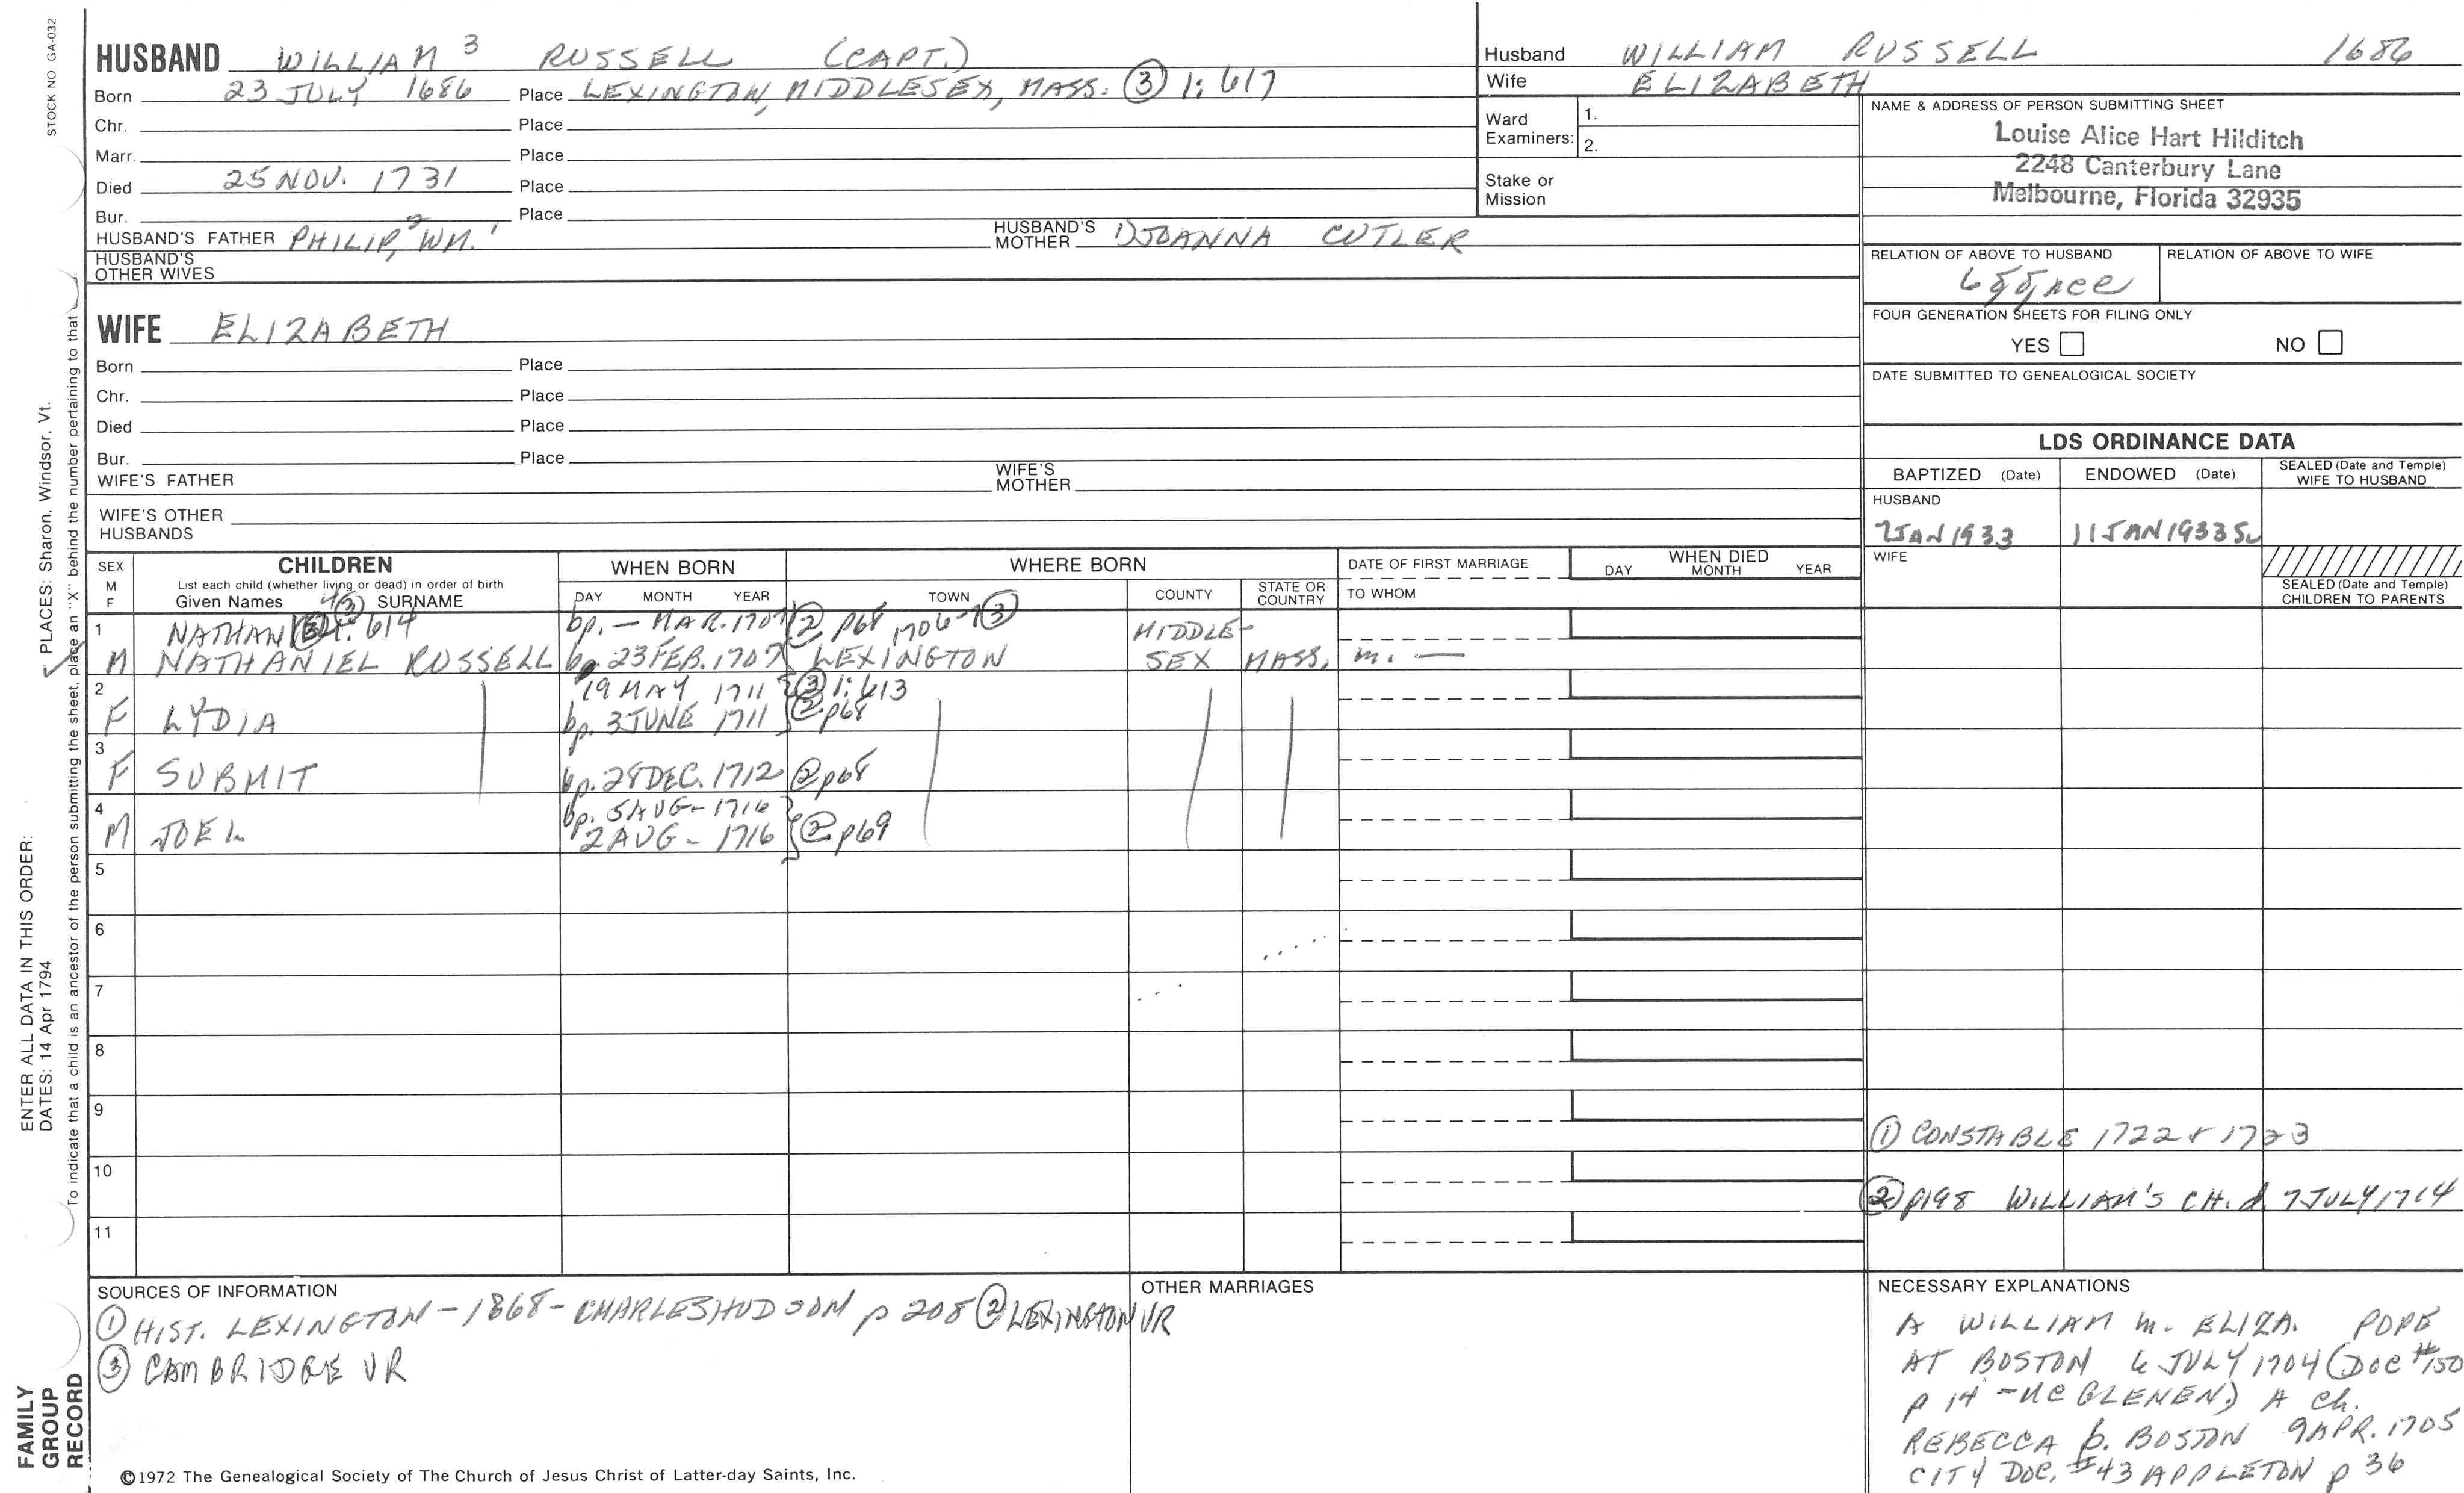 STOCK NO GA-032
HUSBAND WILLIAM 3 RUSSELL (CAPT.)
Born 23 JULY 1686 Place LEXINGTON, MIDDLESEX, MASS. ③ 1: 617
Chr. Place
Marr. Place
Died 25 NOV. 1731 Place
Bur. Place
HUSBAND'S FATHER PHILIP,2 WM.1 HUSBAND'S MOTHER JOANNA CUTLER
HUSBAND'S OTHER WIVES
WIFE ELIZABETH
Born Place
Chr. Place
Died Place
Bur. Place
WIFE'S FATHER WIFE'S MOTHER
WIFE'S OTHER HUSBANDS
Husband WILLIAM RUSSELL 1686
Wife ELIZABETH
Ward Examiners: 1.
2.
Stake or Mission
NAME & ADDRESS OF PERSON SUBMITTING SHEET
Louise Alice Hart Hilditch
2248 Canterbury Lane
Melbourne, Florida 32935
RELATION OF ABOVE TO HUSBAND RELATION OF ABOVE TO WIFE
FOUR GENERATION SHEETS FOR FILING ONLY
YES NO
DATE SUBMITTED TO GENEALOGICAL SOCIETY
LDS ORDINANCE DATA
BAPTIZED (Date) ENDOWED (Date) SEALED (Date and Temple) WIFE TO HUSBAND
HUSBAND
7 JAN 1933 11 JAN 1933 SL
WIFE
SEALED (Date and Temple) CHILDREN TO PARENTS
SEX M F CHILDREN WHEN BORN WHERE BORN DATE OF FIRST MARRIAGE WHEN DIED
List each child (whether living or dead) in order of birth
Given Names SURNAME DAY MONTH YEAR TOWN COUNTY STATE OR COUNTRY TO WHOM DAY MONTH YEAR
1 NATHAN ③ 1: 614 bp. — MAR. 1707 ② p68 1706-7 ③ MIDDLE-
M NATHANIEL RUSSELL bp 23 FEB. 1707 LEXINGTON SEX MASS. m. —
2 19 MAY 1711 ③ 1: 613
F LYDIA bp. 3 JUNE 1711 ② p68
3
F SUBMIT bp. 28 DEC. 1712 ② p68
4 bp. 5 AUG - 1716
M JOEL 2 AUG - 1716 ② p69
5
6
7
8
9
① CONSTABLE 1722 & 1723
10
② p198 WILLIAM'S CH. d. 7 JULY 1714
11
SOURCES OF INFORMATION
① HIST. LEXINGTON - 1868 - CHARLES HUDSON p 208 ② LEXINGTON VR
③ CAMBRIDGE VR
OTHER MARRIAGES
NECESSARY EXPLANATIONS
A WILLIAM m. ELIZA. POPE
AT BOSTON 6 JULY 1704 (DOC #150
p 14 - MC GLENEN.) A Ch.
REBECCA b. BOSTON 9 APR. 1705
CITY DOC. #43 APPLETON p 36
©1972 The Genealogical Society of The Church of Jesus Christ of Latter-day Saints, Inc.
FAMILY GROUP RECORD
ENTER ALL DATA IN THIS ORDER:
DATES: 14 Apr 1794 PLACES: Sharon, Windsor, Vt.
To indicate that a child is an ancestor of the person submitting the sheet, place an "X" behind the number pertaining to that